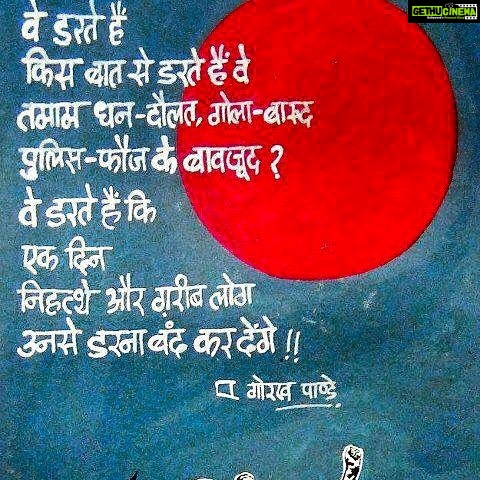 GETHU CINEMA
वे डरते हैं
किस बात से डरते हैं वे
तमाम धन-दौलत, गोला-बारूद
पुलिस-फौज के बावजूद ?
वे डरते हैं कि
एक दिन
निहत्थे और ग़रीब लोग
उनसे डरना बंद कर देंगे !!
गोरख पाण्डे